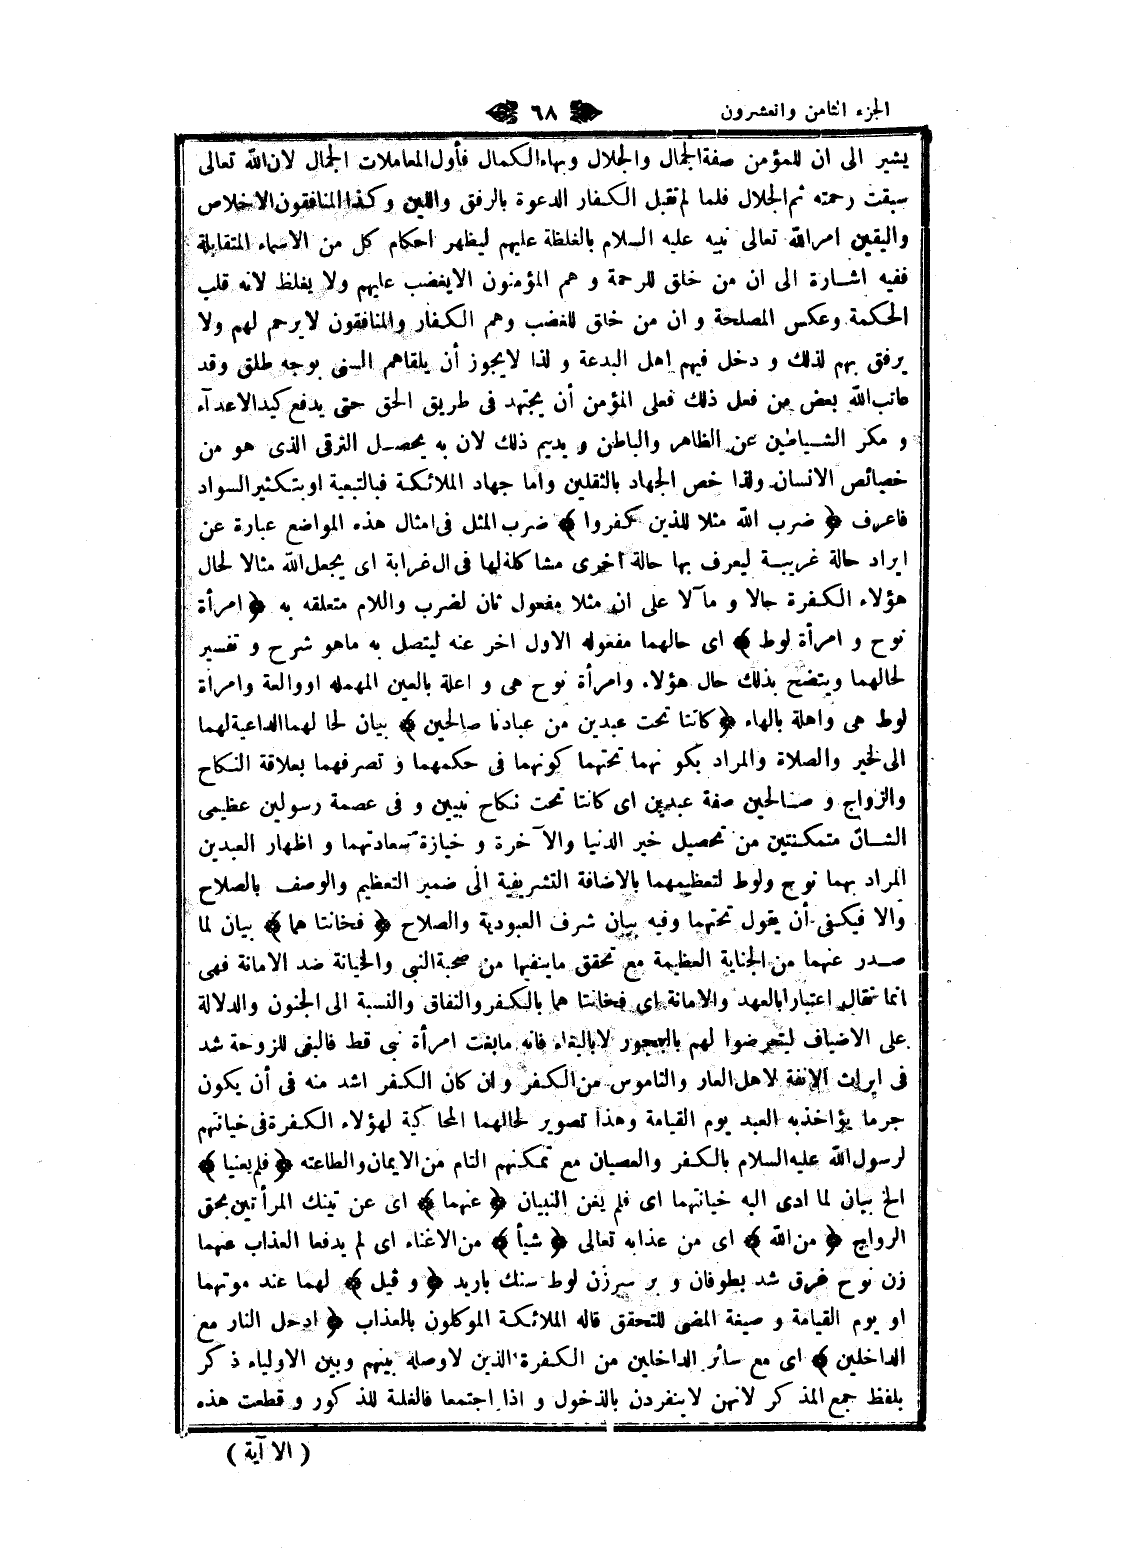 الجزء الثامن والعشرون
٦٨
يشير الى ان للمؤمن صفة الجمال والجلال وبهاء الكمال فأول المعاملات الجمال لان الله تعالى
سبقت رحمته ثم الجلال فلما لم تقبل الكفار الدعوة بالرفق واللين وكذا المنافقون الاخلاص
واليقين امر الله تعالى نبيه عليه السلام بالغلظة عليهم ليظهر احكام كل من الاسماء المتقابلة
ففيه اشارة الى ان من خلق للرحمة و هم المؤمنون لايغضب عليهم ولا يغلظ لانه قلب
الحكمة وعكس المصلحة و ان من خلق للغضب وهم الكفار والمنافقون لا يرحم لهم ولا
يرفق بهم لذلك و دخل فيهم اهل البدعة و لذا لايجوز أن يلقاهم السنى بوجه طلق وقد
عاتب الله بعض من فعل ذلك فعلى المؤمن أن يجتهد فى طريق الحق حتى يدفع كيد الاعدآء
و مكر الشياطين عن الظاهر والباطن و يديم ذلك لان به يحصل الترقى الذى هو من
خصائص الانسان ولذا خص الجهاد بالثقلين واما جهاد الملائكة فبالتبعية اوبتكثير السواد
فاعرف ﴿ ضرب الله مثلا للذين كفروا ﴾ ضرب المثل فى امثال هذه المواضع عبارة عن
ايراد حالة غريبة ليعرف بها حالة اخرى مشاكلة لها فى الغرابة اى يجعل الله مثالا لحال
هؤلاء الكفرة حالا و مآ لا على ان مثلا مفعول ثان لضرب واللام متعلقه به ﴿ امرأة
نوح و امرأة لوط ﴾ اى حالهما مفعوله الاول اخر عنه ليتصل به ماهو شرح و تفسير
لحالهما ويتضح بذلك حال هؤلاء وامرأة نوح هى و اعلة بالعين المهمله اووالعة وامرأة
لوط هى واهلة بالهاء ﴿ كانتا تحت عبدين من عبادنا صالحين ﴾ بيان لحا لهما الداعية لهما
الى لخير والصلاة والمراد بكو نهما تحتهما كونهما فى حكمهما و تصرفهما بعلاقة النكاح
والزواج و صالحين صفة عبدين اى كانتا تحت نكاح نبيين و فى عصمة رسولين عظيمى
الشان متمكنتين من تحصيل خير الدنيا والآ خرة و خيازة سعادتهما و اظهار العبدين
المراد بهما نوح ولوط لتعظيمهما بالاضافة التشريفية الى ضمير التعظيم والوصف بالصلاح
والا فيكفى أن يقول تحتهما وفيه بيان شرف العبودية والصلاح ﴿ فخانتا هما ﴾ بيان لما
صدر عنهما من الجناية العظيمة مع تحقق ماينفيها من صحبة النبى والخيانة ضد الامانة فهى
انما تقال اعتبارا بالعهد والامانة اى فخانتا هما بالكفر والنفاق والنسبة الى الجنون والدلالة
على الاضياف ليتعرضوا لهم بالفجور لابالبغاء فانه مابغت امرأة نبى قط فالبغى للزوجة شد
فى ايراث الانفة لاهل العار والناموس من الكفر و ان كان الكفر اشد منه فى أن يكون
جرما يؤاخذ به العبد يوم القيامة وهذا تصوير لحالهما المحاكية لهؤلاء الكفرة فى خيانتهم
لرسول الله عليه السلام بالكفر والعصيان مع تمكنهم التام من الايمان والطاعته ﴿ فلم يغنيا ﴾
الخ بيان لما ادى اليه خيانتهما اى فلم يغن النبيان ﴿ عنهما ﴾ اى عن تينك المرأتين بحق
الرواج ﴿ من الله ﴾ اى من عذابه تعالى ﴿ شيأ ﴾ من الاغناء اى لم يدفعا العذاب عنهما
زن نوح غرق شد بطوفان و بر سرزن لوط سنك باريد ﴿ و قيل ﴾ لهما عند موتهما
او يوم القيامة و صيغة المضى للتحقق قاله الملائكة الموكلون بالعذاب ﴿ ادخل النار مع
الداخلين ﴾ اى مع سائر الداخلين من الكفرة الذين لاوصلة بينهم وبين الاولياء ذكر
بلفظ جمع المذكر لانهن لاينفردن بالدخول و اذا اجتمعا فالغلبة للذكور و قطعت هذه
( الآية )